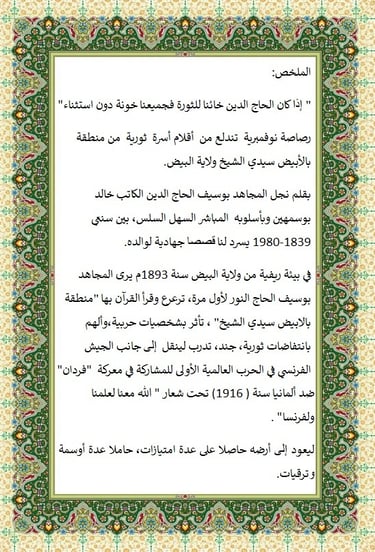 الملخص:
" إذا كان الحاج الدين خائنا للثورة فجميعنا خونة دون استثناء"
رصاصة نوفمبرية تندلع من أقلام أسرة ثورية من منطقة
بالأبيض سيدي الشيخ ولاية البيض.
بقلم نجل المجاهد بوسيف الحاج الدين الكاتب خالد
بوسمهين وبأسلوبه المباشر السهل السلس، بين سنتي
1839-1980 يسرد لنا قصصا جهادية لوالده.
في بيئة ريفية من ولاية البيض سنة 1893م يرى المجاهد
بوسيف الحاج النور لأول مرة، ترعرع وقرأ القرآن بها "منطقة
بالابيض سيدي الشيخ" ، تأثر بشخصيات حربية،وألهم
بانتفاضات ثورية، جند، تدرب لينقل إلى جانب الجيش
الفرنسي في الحرب العالمية الأولى للمشاركة في معركة "فردان"
ضد ألمانيا سنة ( 1916) تحت شعار " الله معنا لعلمنا
ولفرنسا" .
ليعود إلى أرضه حاصلا على عدة امتيازات، حاملا عدة أوسمة
وترقيات.